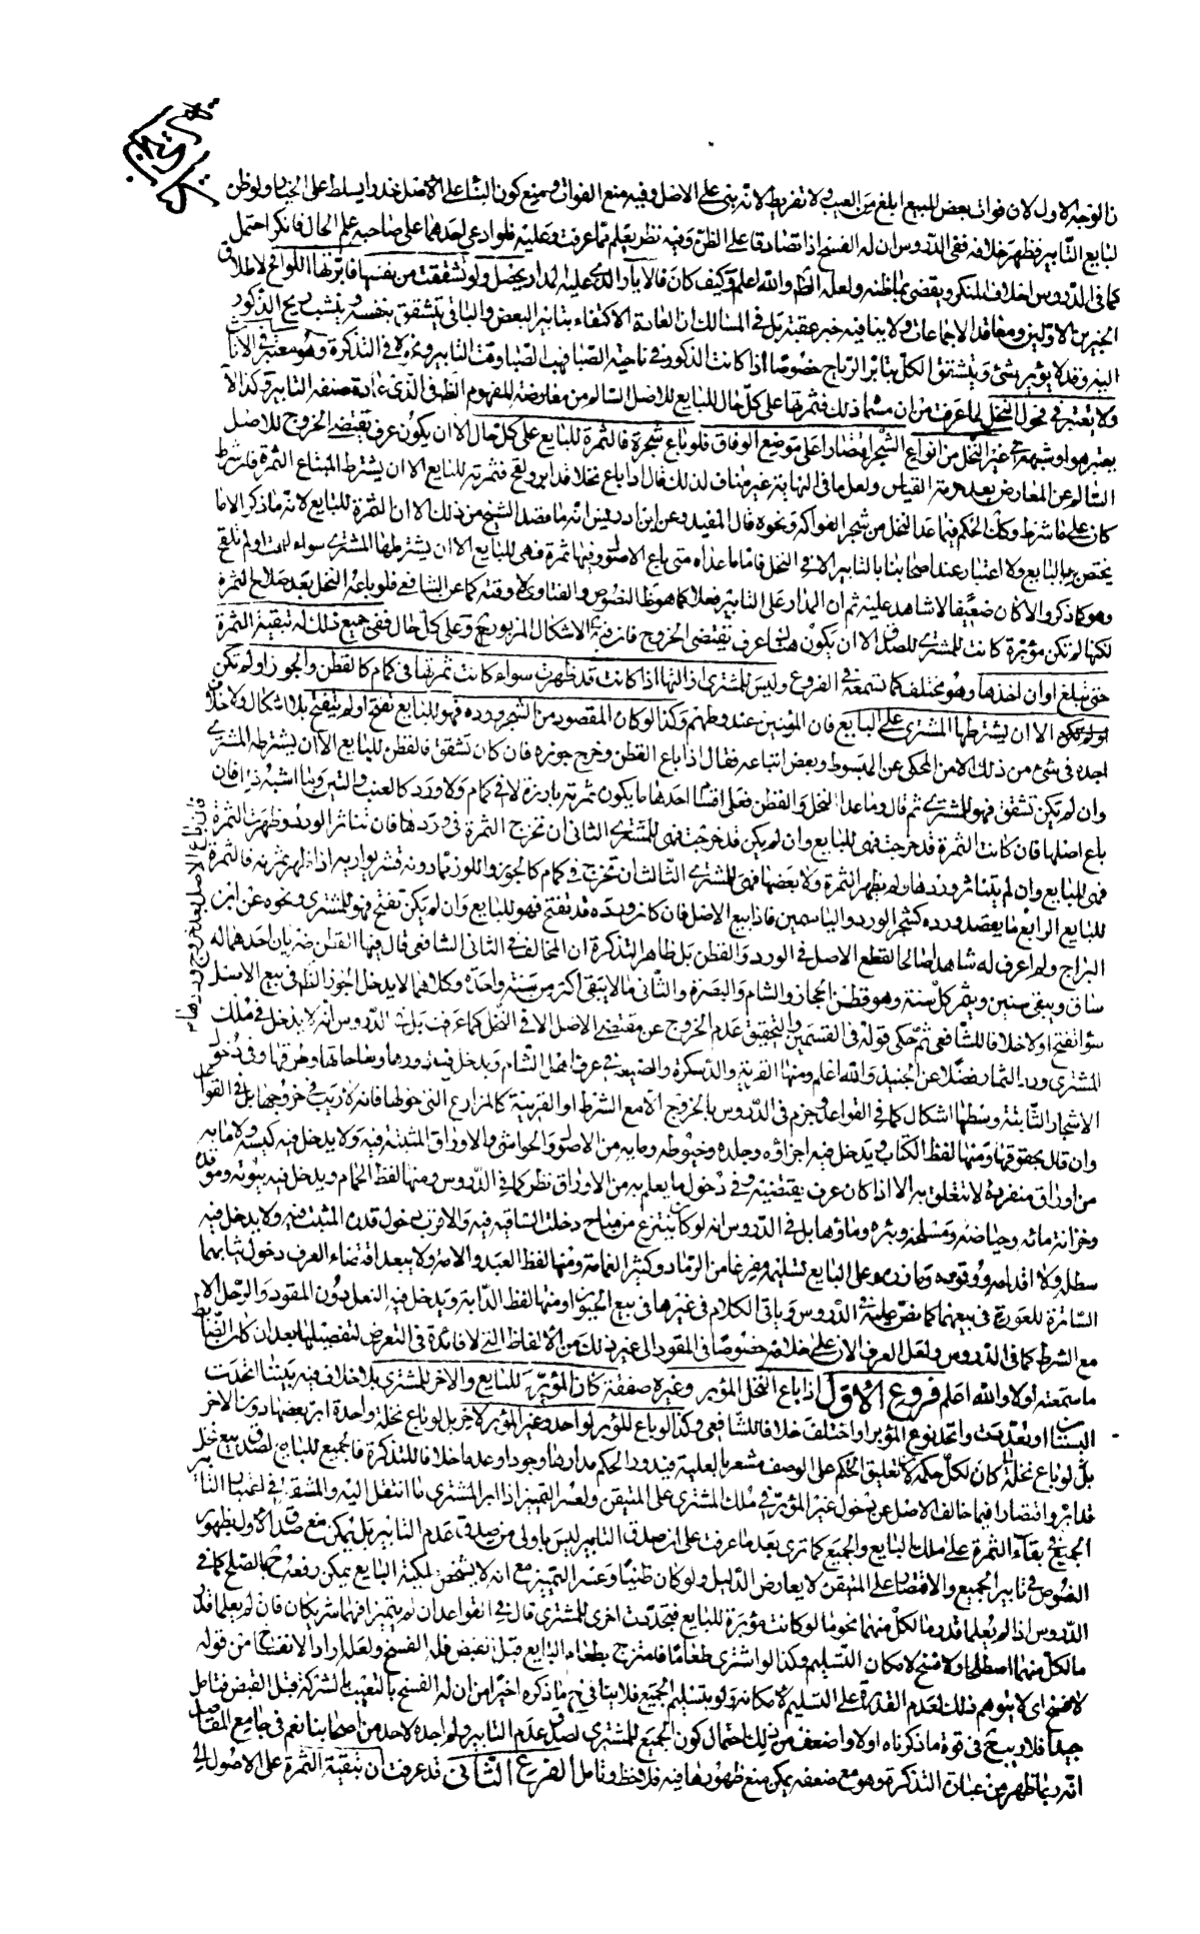 كتاب التجارة
ن الوجه الاول لان فوات بعض المبيع ابلغ من العيب ولا تفريط لانه بنى على الاصل وفيه منع الفوات ومنع كون البناء على الاصل عذرا يسلط على الخيار ولو ظن
البايع التابير فظهر خلافه ففي الدروس ان له الفسخ اذا تصادقا على الظن وفيه نظر يعلم مما عرفت وعليه فلو ادعى احدهما على صاحبه علم الحال فانكر احتمل
كما في الدروس احلاف المنكر ويقضى بباطنه ولعله الظ والله اعلم وكيف كان فالابار الذي عليه المدار يحصل ولو تشققت من نفسها فابرتها اللواقح لاطلاق
الخبرين الاولين ومعاقد الاجماعات ولا ينافيه خبر عقبة بل في المسالك ان العادة الاكتفاء بتابير البعض والباقي يتشقق بنفسه وينبث ريح الذكور
اليه وقد لا يؤبر شئ ويتشقق الكل بتابر الرياح خصوصا اذا كانت الذكور في ناحية الصبا فهب الصبا وقت التابير ونحوه في التذكرة وهو معتبر في الاناث
ولا يعتبر في فحول النخل لما عرفت من ان مشما ذلك فثمرتها على كل حال للبايع للاصل السالم من معارضة المفهوم الظ في الذي عادة صنفه التابير وكذا لا
يعتبر هو او شبهه في غير النخل من انواع الشجر اقتصارا على موضع الوفاق فلو باع شجرة فالثمرة للبايع على كل حال الا ان يكون عرف يقتضى الخروج للاصل
السالم عن المعارض بعد حرمة القياس ولعل ما في النهاية غير مناف لذلك قال اذا باع نخلا قد ابر ولقح فثمرته للبايع الا ان يشترط المبتاع الثمرة فان شرط
كان على ما شرط وكك الحكم فيما عدا النخل من شجر الفواكه ونحوه قال المفيد وعن ابن ادريس انه ما قصد الشيخ من ذلك الا ان الثمرة للبايع لانه ما ذكر الا ما
يختص بالبايع ولا اعتبار عند اصحابنا بالتابير الا في النخل فاما ما عداه متى باع الاصول وفيها ثمرة فهى للبايع الا ان يشترطها المشترى سواء لقحت او لم تلقح
وهو كما ذكر والا كان ضعيفا لا شاهد عليه ثم ان المدار على التابير فعلا كما هو ظ النصوص والفتاوى لا وقته كما عن الشافعي فلو باعه النخل بعد صلاح الثمرة
لكنها لم تكن مؤبرة كانت للمشترى للصدق الا ان يكون هناك عرف يقتضى الخروج وعلى كل حال ففي جميع ذلك له تبقية الثمرة
حتى تبلغ اوان اخذها وهو مختلف كما تسمعه في الفروع وليس للمشترى ازالتها اذا كانت قد ظهرت سواء كانت ثمرتها في كمام كالقطن والجوز او لم تكن
الا ان يشترطها المشترى على البايع فان المؤمنين عند شروطهم وكذا لو كان المقصود من الشجر ورده فهو للبايع تفتح او لم يتفتح بلا اشكال ولا خلاف
اجده في شئ من ذلك الا من المحكى عن المبسوط وبعض اتباعه فقال اذا باع القطن وخرج جوزه فان كان تشقق فالقطن للبايع الا ان يشترطه المشترى
وان لم يكن تشقق فهو للمشترى ثم قال وما عدا النخل والقطن فعلى اقسام احدها ما يكون ثمرته بارزة لا في كمام ولا ورد كالعنب والتين وما اشبه ذلك فان
باع اصلها فان كانت الثمرة قد خرجت فهى للبايع وان لم يكن قد خرجت فهى للمشترى الثاني ان تخرج الثمرة في ورد فان باع الاصل بعد خروج وردها فان تناثر الورد وظهرت الثمرة
فهى للبايع وان لم يتناثر وردها ولم يظهر الثمرة ولا بعضها فهى للمشترى الثالث ان تخرج في كمام كالجوز واللوز مما دونه قشر يواريه اذا ظهر ثمرته فالثمرة
للبايع الرابع ما يقصد ورده كشجر الورد والياسمين فاذا بيع الاصل فان كان ورده قد تفتح فهو للبايع وان لم يكن تفتح فهو للمشترى ونحوه عن ابن
البراج ولم اعرف له شاهدا صالحا لقطع الاصل في الورد والقطن بل ظاهر التذكرة ان المخالف في الثاني الشافعي قال فيها القطن ضربان احدهما له
ساق ويبقى سنين ويثمر كل سنة وهو قطن الحجاز والشام والبصرة والثاني ما لا يبقى اكثر من سنة واحدة وكلاهما لا يدخل الجوز الظ في بيع الاصل
سواء تفتح او لا خلافا للشافعي ثم حكى قوله في القسمين والتحقيق عدم الخروج عن مقتضى الاصل الا في النخل كما عرفت بل في الدروس انه لا يدخل في ملك
المشترى ورد الثمار فضلا عن الجنبذ والله اعلم ومنها القرية والدسكرة والضيعة في عرف اهل الشام ويدخل فيه دورها وساحاتها وطرقها وفي دخول
الاشجار الثابتة وسطها اشكال كما في القواعد وجزم في الدروس بالخروج الا مع الشرط او القرينة كالمزارع التي حولها فانه لا ريب في خروجها بل في القواعد
وان قال بحقوقها ومنها لفظ الكتاب ويدخل فيه اجزاؤه وجلده وخيوطه وما به من الاصول والحواشي والاوراق المثبتة فيه ولا يدخل فيه كيسه ولا ما به
من اوراق منفردة لا تتعلق به الا اذا كان عرف يقتضيه وفي دخول ما يعلم به من الاوراق نظر كما في الدروس ومنها لفظ الحمام ويدخل فيه بيوته وموقده
وخزانة مائه وحياضه ومسلخه وبئره وماؤها بل في الدروس انه لو كان ينتزع من مباح دخلت الساقية فيه والاقرب دخول قدره المثبت فيه ولا يدخل فيه
سطله ولا اقداحه ووقوده وعلى البايع تسليمه مفرغا من الرماد وكثير القمامة ومنها لفظ العبد والامة ولا يبعد اقتضاء العرف دخول ثيابهما
الساترة للعورة في بيعهما كما نص عليه في الدروس وياتى الكلام في غيرها في بيع الحيوان ومنها لفظ الدابة ويدخل فيه النعل دون المقود والرحل الا
مع الشرط كما في الدروس ولعل العرف الان على خلافه خصوصا في المقود الى غير ذلك من الالفاظ التي لا فائدة في التعرض لتفصيلها بعد ان كان الضابط
ما سمعته اولا والله اعلم فروع الاول اذا باع النخل المؤبر وغيره صفقة كان المؤبر للبايع والاخر للمشترى بلا خلاف فيه بيننا اتحدت
البستان او تعددت واتحد نوع المؤبر او اختلف خلافا للشافعي وكذا لو باع المؤبر لواحد وغير المؤبر لاخر بل لو باع نخلة واحدة ابر بعضها دون الاخر
بل لو باع نخلة كان لكل حكمه لان تعليق الحكم على الوصف مشعر بالعلية فيدور الحكم مدارها وجودا وعدما خلافا للتذكرة فالجميع للبايع لصدق بيع نخل
قد ابر واقتصارا فيما خالف الاصل عن دخول غير المؤبر في ملك المشترى على المتيقن ولعسر التمييز اذا ابر المشترى ما انتقل اليه والمشقة في اعتبار التابير
الجميع في بقاء الثمرة على ملك البايع والجميع كما ترى بعد ما عرفت على ان صدق التابير ليس باولى من صدق عدم التابير بل يمكن منع صدق الاول بظهور
النصوص في تابير الجميع والاقتصار على المتيقن لا يعارض الدليل ولو كان ظنيا وعسر التمييز مع انه لا يشخص لملكية البايع يمكن رفعه بالصلح كما في
الدروس اذا لم يعلما قدر ما لكل منهما نحو ما لو كانت مؤبرة للبايع فتجددت اخرى للمشترى قال في القواعد ان لم يتميز فهما شريكان فان لم يعلما قدر
ما لكل منهما اصطلحا ولا فسخ لامكان التسليم وكذا لو اشترى طعاما فامتزج بطعام البايع قبل القبض فله الفسخ ولعله اراد الانفساخ من قوله
لا فسخ اى لا يتوهم ذلك لعدم القدرة على التسليم لامكانه ولو بتسليم الجميع فلا ينافي ما ذكره اخيرا من ان له الفسخ بالتعيب بالشركة قبل القبض فتامل
جيدا فلا ريب في قوة ما ذكرناه اولا واضعف من ذلك احتمال كون الجميع للمشترى لصدق عدم التابير ولم اجده لاحد من اصحابنا نعم في جامع المقاصد
انه ربما ظهر من عبارة التذكرة وهو مع ضعفه يمكن منع ظهورها فيه فلاحظ وتامل الفرع الثاني قد عرفت ان تبقية الثمرة على الاصول الى